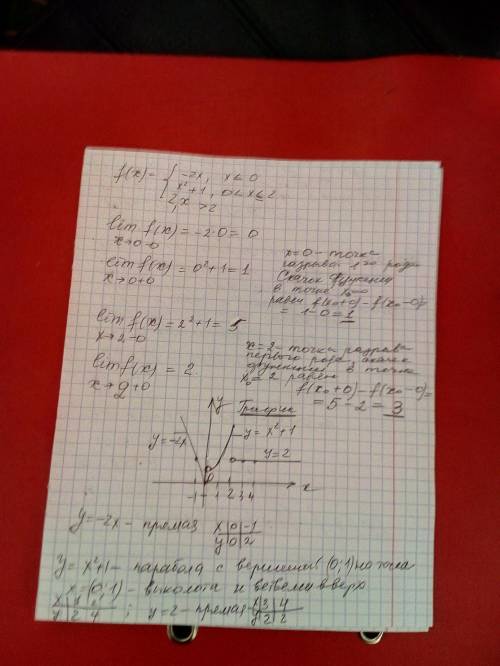 f(x) = { -2x, x ≤ 0
x²+1, 0 < x ≤ 2
2, x > 2
lim f(x) = -2·0 = 0
x→0-0
lim f(x) = 0²+1 = 1
x→0+0
x=0 - точка
разрыва 1го рода
Скачок функции
в точке x₀=0
равен f(x₀+0)-f(x₀-0)
= 1-0 = 1
lim f(x) = 2²+1 = 5
x→2-0
lim f(x) = 2
x→2+0
x=2 - точка разрыва
первого рода скачок
функции в точке
x₀=2 равен
f(x₀+0)-f(x₀-0)=
= 5-2 = 3
y
График
y=-2x
y=x²+1
y=2
-1 1 2 3 4
x
y=-2x - прямая x 0 -1
y 0 2
y=x²+1 - парабола с вершиной (0;1) но точка
(0;1) - выколота и ветвями вверх
y=2 - прямая x 3 4
y 2 2